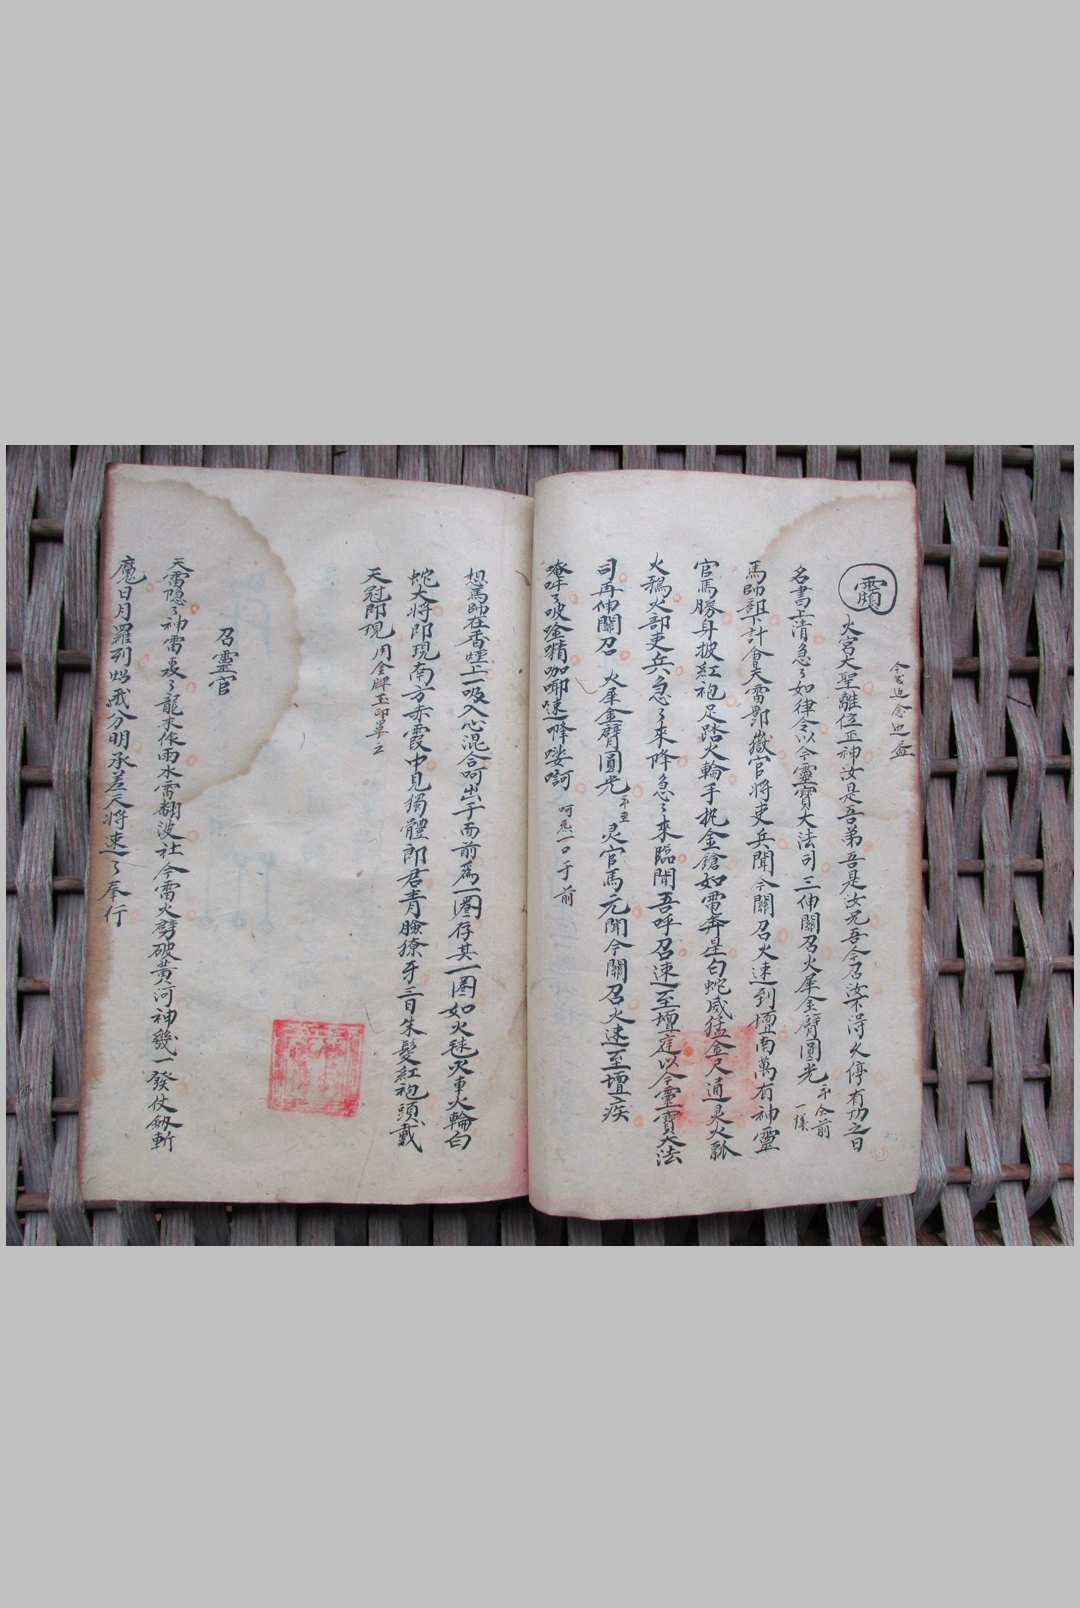 火宮大聖離位正神汝是吾弟吾是汝兄吾今召汝不得久停有功之日
名書上清急々如律令以今靈寶大法司三伸關召火犀金臂圓光
馬帥部下計會天雷酆嶽官將吏兵聞今關召火速到壇南萬有神靈
官馬勝身披紅袍足踏火輪手执金鎗如電奔星白蛇威猛金尺通灵火瓢
火鴉火部吏兵急々來降急々來臨聞吾呼召速至壇庭以今靈寶大法
司再伸關召 火犀金臂圓光 灵官馬元聞今關召火速至壇疾
唵吽々 呵炁一口于前
想馬帥在香煙上一吸入心混合呵出于面前為一圈存其一圈如火毬火車火輪白
蛇大將即現南方赤霞中見獨體郎君青臉獠牙三目朱髮紅袍頭戴
天冠即現 用金牌玉印
召靈官
天雷隱々神雷轰々龍來作雨水雷翻波社令雷火劈破黃河神幾一發仗劍斬
魔日月羅列照我分明承差天將速々奉行